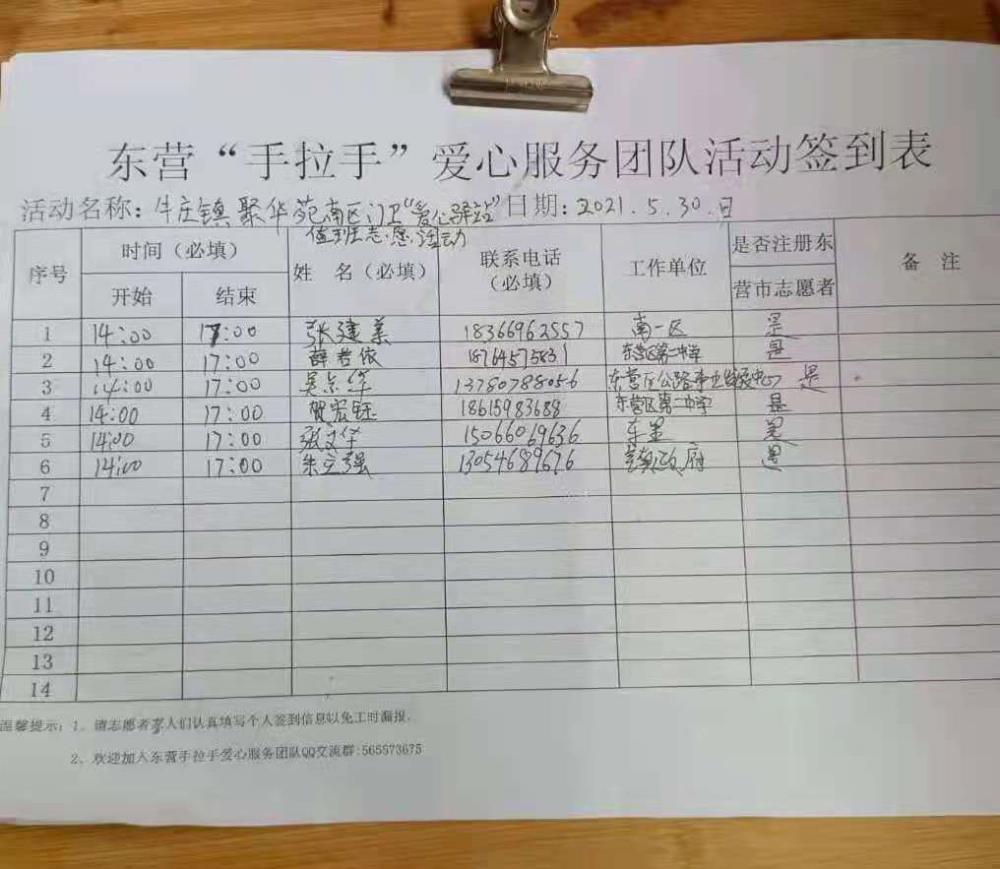 东营“手拉手”爱心服务团队活动签到表
活动名称：牛庄镇聚华苑南区门卫“爱心驿站”日期：2021.5.30.日
值班志愿活动
序号 时间（必填） 姓 名（必填） 联系电话（必填） 工作单位 是否注册东营市志愿者 备 注
开始 结束
1 14:00 17:00 张建业 18366962557 南一区 是
2 14:00 17:00 薛君依 18764575831 东营区第二中学 是
3 14:00 17:00 吴东华 13780788056 东营区公路事业发展中心 是
4 14:00 17:00 贺宏钰 18615983688 东营区第二中学 是
5 14:00 17:00 张文华 15066069636 是
6 14:00 17:00 朱立强 13054689676 镇政府 是
7
8
9
10
11
12
13
14
温馨提示：1、请志愿者家人们认真填写个人签到信息以免工时漏报。
2、欢迎加入东营手拉手爱心服务团队QQ交流群:565573675